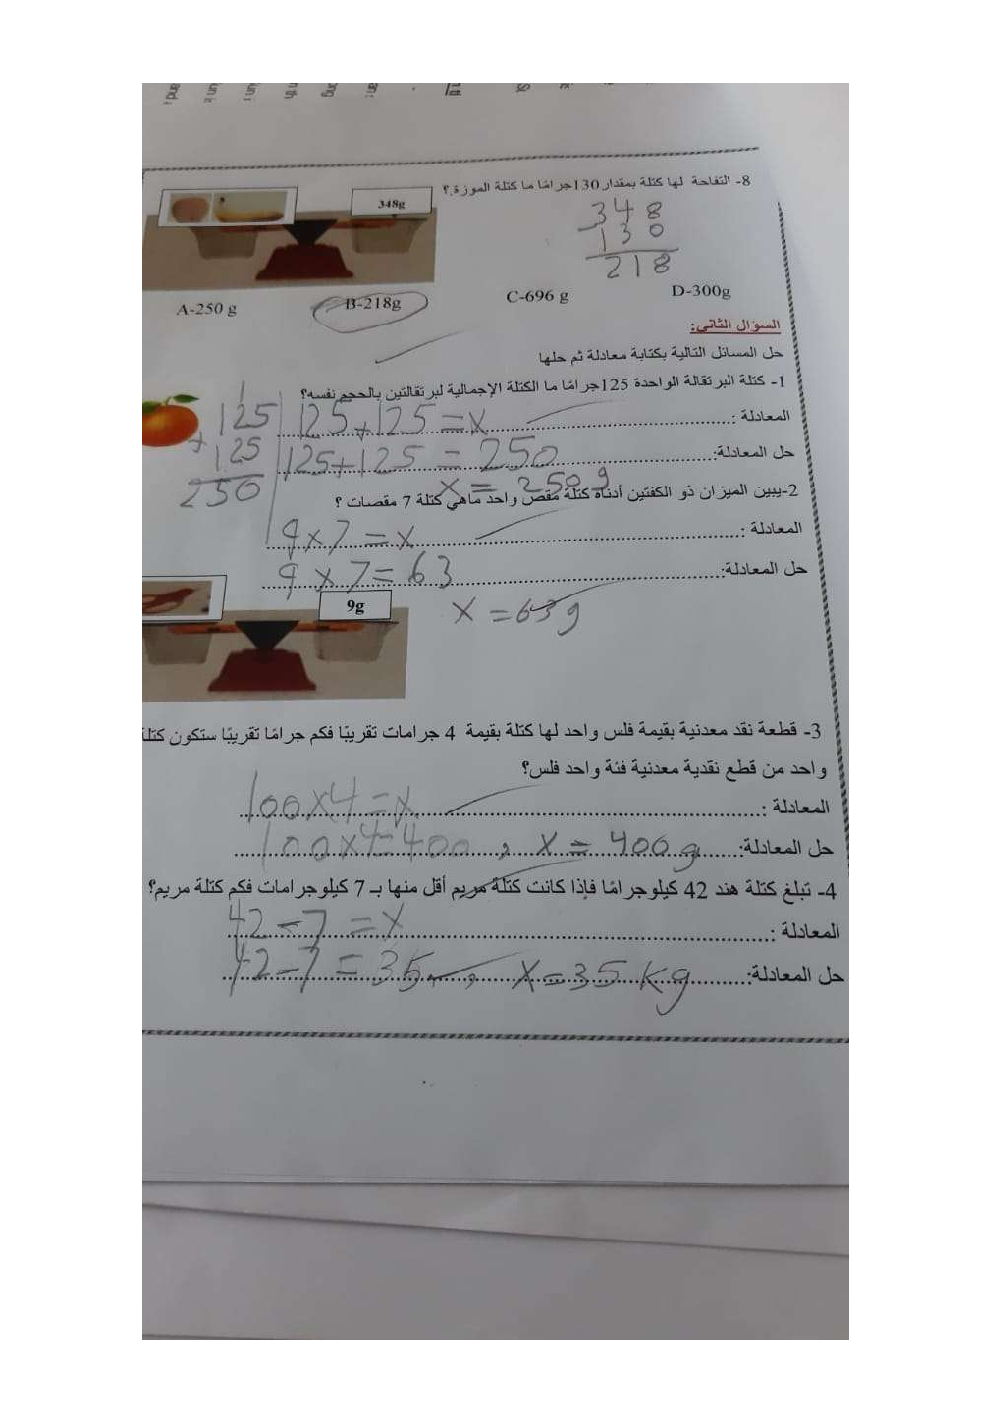 8- التفاحة لها كتلة بمقدار 130جرامًا ما كتلة الموزة.؟
348g
348
130
218
A-250 g B-218g C-696 g D-300g
السؤال الثاني:
حل المسائل التالية بكتابة معادلة ثم حلها
1- كتلة البرتقالة الواحدة 125جرامًا ما الكتلة الإجمالية لبرتقالتين بالحجم نفسه؟
المعادلة : 125+125=x
حل المعادلة: 125+125=250
x=250g
1
125
+125
250
2-يبين الميزان ذو الكفتين أدناه كتلة مقص واحد ماهي كتلة 7 مقصات ؟
المعادلة : 9x7=x
حل المعادلة: 9x7=63
x=63g
9g
3- قطعة نقد معدنية بقيمة فلس واحد لها كتلة بقيمة 4 جرامات تقريبًا فكم جرامًا تقريبًا ستكون كتلة
واحد من قطع نقدية معدنية فئة واحد فلس؟
المعادلة : 100x4=x
حل المعادلة: 100x4=400 , x=400g
4- تبلغ كتلة هند 42 كيلوجرامًا فإذا كانت كتلة مريم أقل منها بـ 7 كيلوجرامات فكم كتلة مريم؟
المعادلة : 42-7=x
حل المعادلة: 42-7=35 , x=35 kg